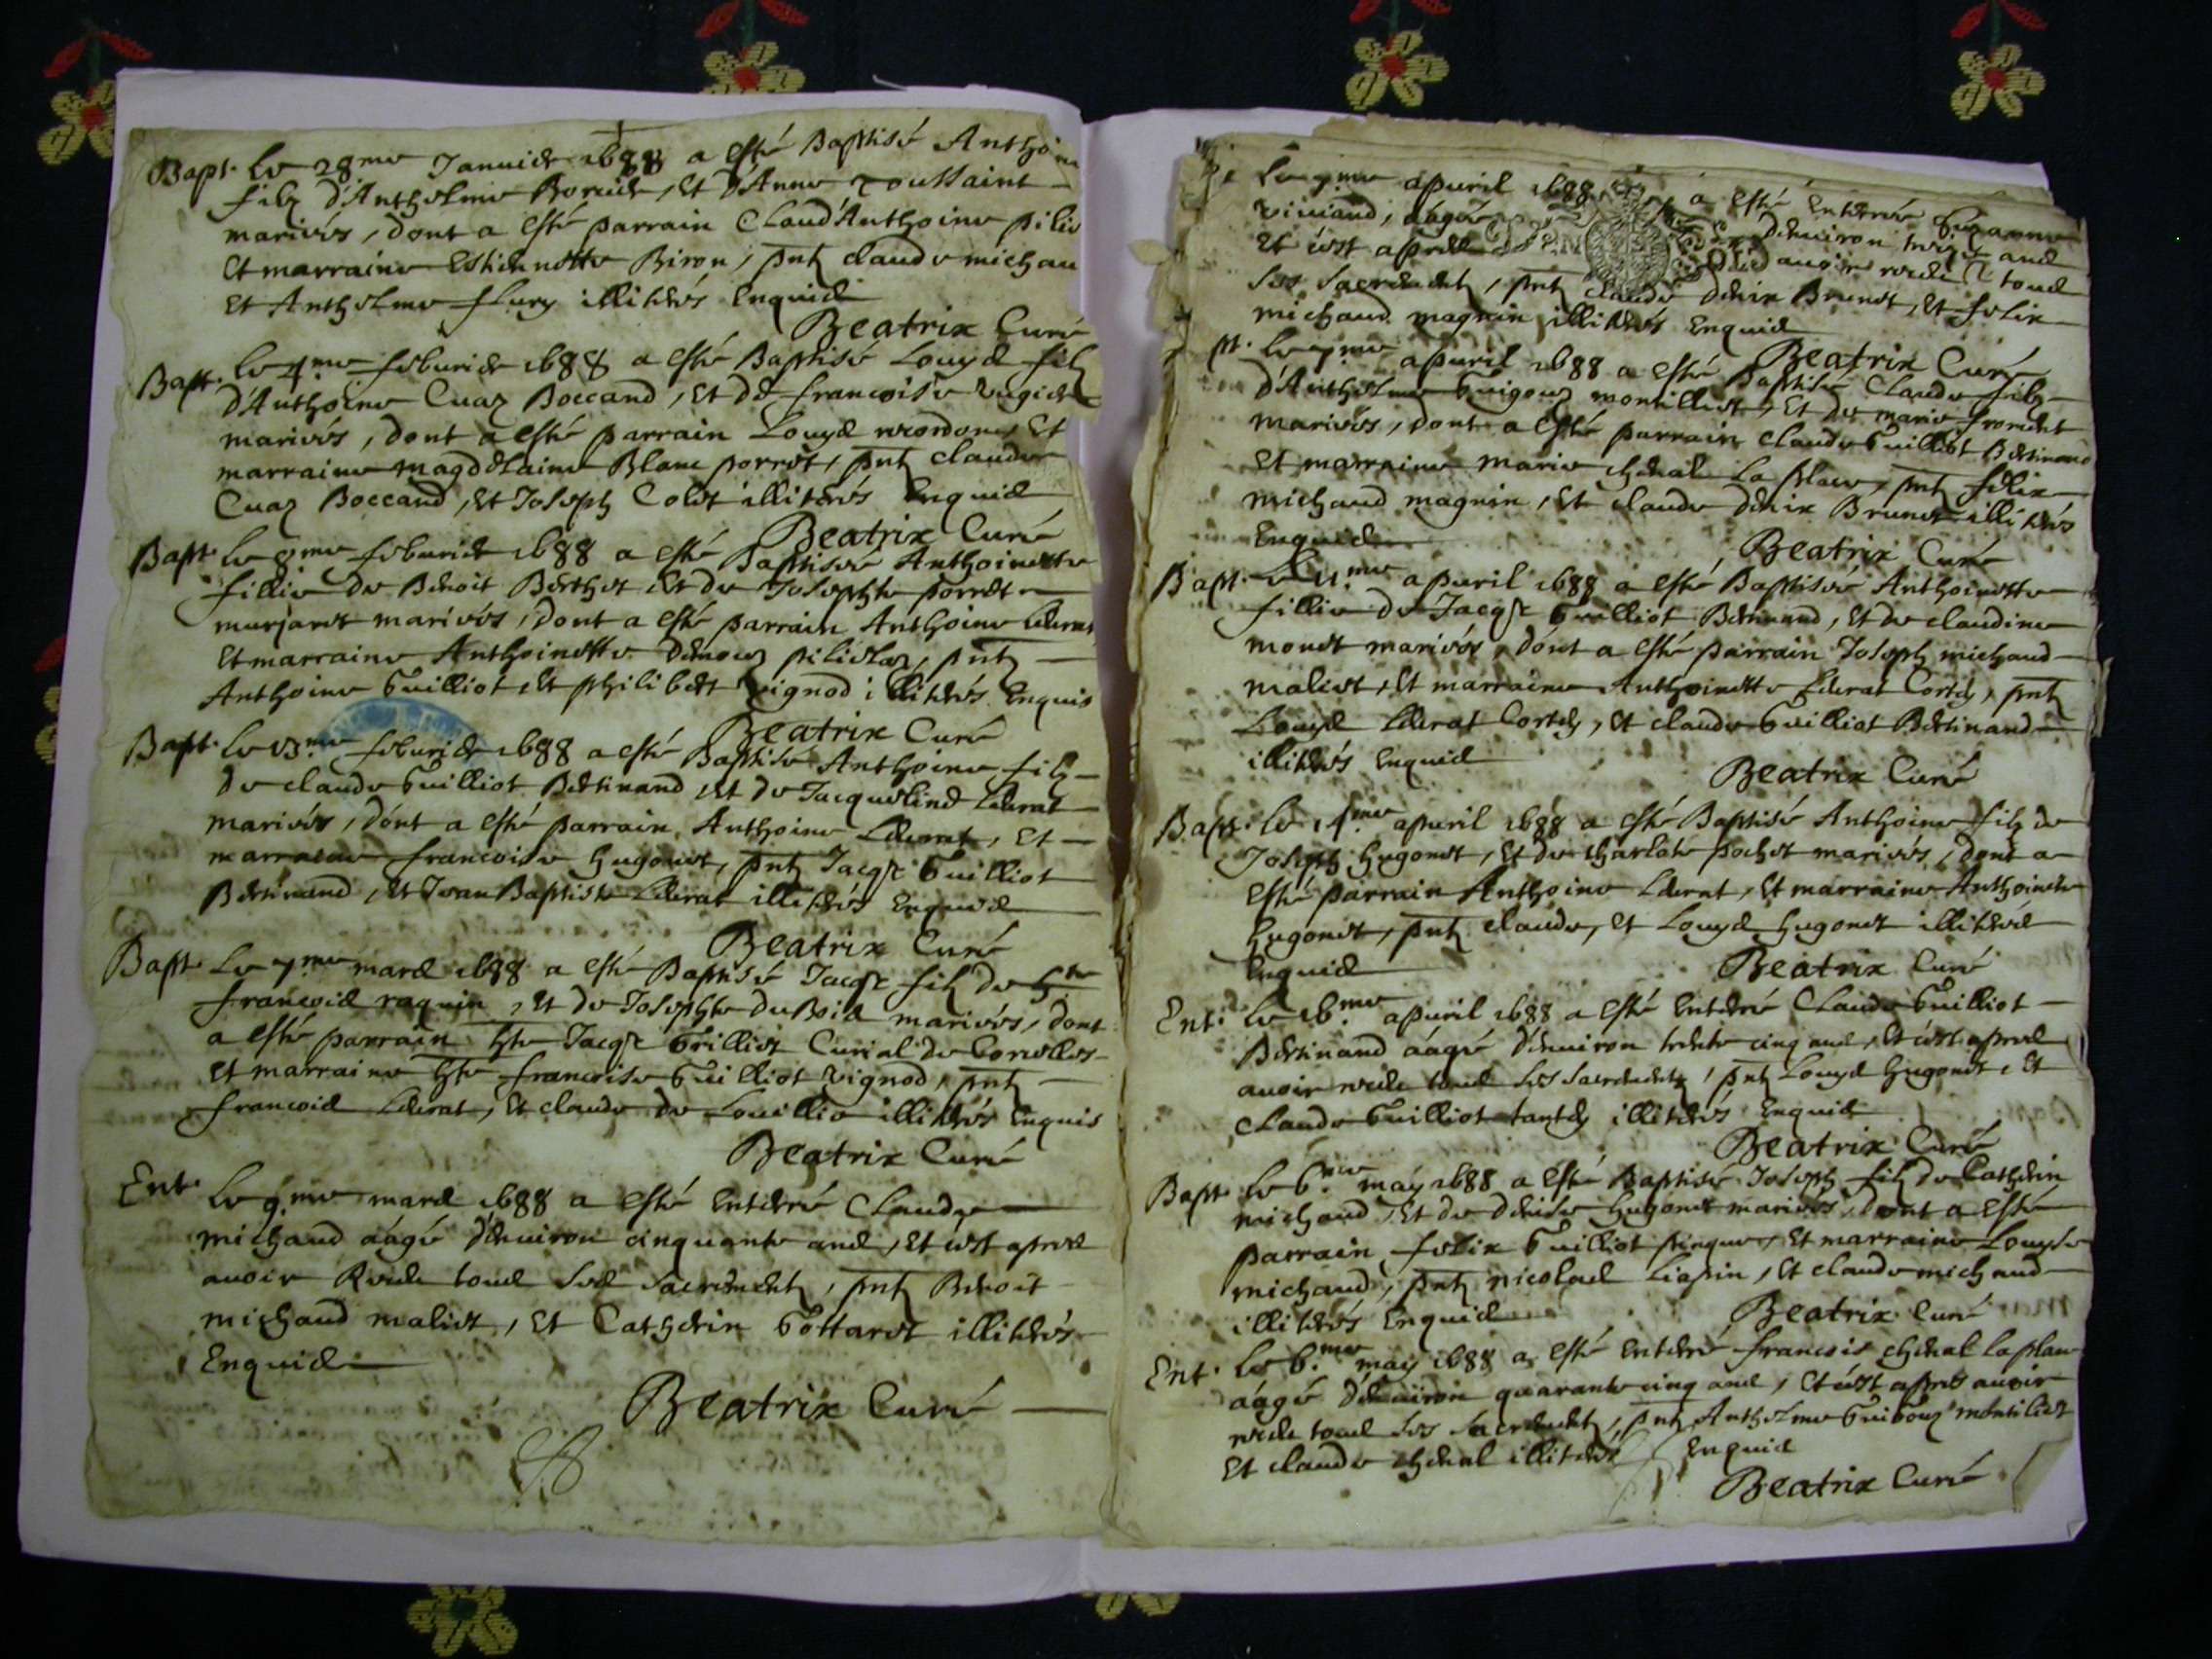 Bapt. Le 28me Januier 1688 a esté Baptisé Anthoine
filz d'Antholme Borcier, Et d'Anne Toussaint
mariés, dont a esté parrain Claud'Anthoine pilio
Et marraine Estiennette Biron, pntz claude michau
Et Antholme flury illiterés Enquis
Beatrix Curé
Bapt. Le 4.me feburier 1688 a esté Baptisé Louys filz
d'Anthoine Cuaz Boccand, Et de francoise
mariés, dont a esté parrain Louys Et
marraine magdelaine Blanc perret, pntz claude
Cuaz Boccand, Et Joseph Colet illiterés Enquis
Beatrix Curé
Bapt. Le 8me feburier 1688 a esté Baptisée Anthoinette
fillie de Benoit Berthet Et de Josephte perret
murjaret mariés, dont a esté parrain Anthoine Liberat
Et marraine Anthoinette pntz
Anthoine Guilliot, Et philibert vignod illiterés Enquis
Beatrix Curé
Bapt. Le 13.me feburier 1688 a esté Baptisé Anthoine filz
de claude Guilliot Bertinand, Et de Jacqueline
mariés, dont a esté parrain Anthoine Et
marraine francoise hugonet, pntz Jacqs Guilliot
Bertinand, Et Jean Baptiste illiterés Enquis
Beatrix Curé
Bapt. Le 7.me mars 1688 a esté Baptisé Jacqs filz de hte
francois raquin, Et de Josephte DuBois mariés, dont
a esté parrain hte Jacqs Grilliet Curial de
Et marraine hte francoise Guilliot vignod, pntz
francois Et claude de Louillie illiterés Enquis
Beatrix Curé
Ent. Le 9.me mars 1688 a esté Enterré Claude
michaud aágé d'enuiron cinquante ans, Et c'est apres
auoir Receu tous Ses Sacrements, pntz Benoit
michaud maliet, Et Catherin Gottaret illiterés
Enquis
Beatrix Curé
Le 7me apuril 1688 a esté Enterrée
viuiand, aágée D'enuiron ans
Et c'est apres auoir receu tous
Ses Sacrements, pntz claude Denix Brunet, Et felix
michaud magnin illiterés Enquis
Beatrix Curé
pt. Le 7.me apuril 1688 a esté Baptisé Claude filz
d'Antholme Guigouz montilliet, Et de marie froment
mariés, dont a esté parrain claude Guilliot Bertinand
Et marraine marie cheual La place, pntz felix
michaud magnin, Et claude Denix Brunet illiterés
Enquis
Beatrix Curé
Bapt. Le 11.me apuril 1688 a esté Baptisée Anthoinette
fillie de Jacqs Guilliot Bertinand, Et de claudine
monet mariés, dont a esté parrain Joseph michaud
maliet, Et marraine Anthoinette pntz
Louys Et claude Guilliot Bertinand
illiterés Enquis
Beatrix Curé
Bapt. Le 14.me apuril 1688 a esté Baptisé Anthoine filz de
Joseph hugonet, Et de charlote pochet mariés, dont a
esté parrain Anthoine Et marraine Anthoinette
hugonet, pntz claude, Et Louys hugonet illiterés
Enquis
Beatrix Curé
Ent. Le 16.me apuril 1688 a esté Enterré Claude Guilliot
Bertinand aágé d'enuiron trente cinq ans, Et c'est apres
auoir receu tous Ses Sacrements, pntz Louys hugonet, Et
Claude Guilliot illiterés Enquis
Beatrix Curé
Bapt. Le 6.me may 1688 a esté Baptisé Joseph filz de Catherin
michaud, Et de Denise hugonet mariés, dont a Esté
parrain felix Guilliot Et marraine Louyse
michaud, pntz nicolas Liapin, Et claude michaud
illiterés Enquis
Beatrix Curé
Ent. Le 6.me may 1688 a esté Enterré francois cheual La place
aágé d'enuiron quarante cinq ans, Et c'est apres auoir
receu tous Ses Sacrements, pntz Antholme Guigouz montiliet
Et claude cheual illiterés Enquis
Beatrix Curé